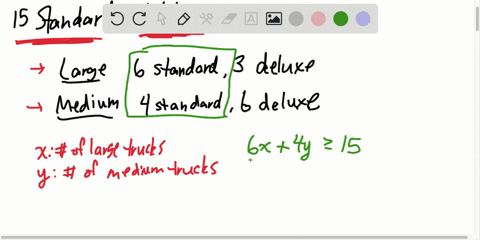 15 Standard
→ Large 6 standard, 3 deluxe
→ Medium 4 standard, 6 deluxe
x: # of large trucks
y: # of medium trucks
6x + 4y ≥ 15